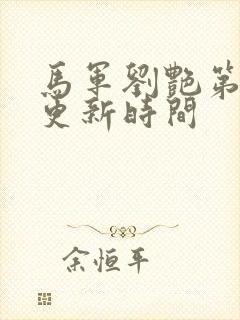 馬軍劉艷第
更新時間
余恒平